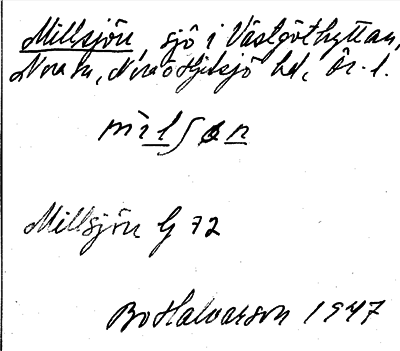 Millsjön, sjö i Västgöthyttan,
Nora sn, Nora o Hjulsjö hd, Ör. l.
mìlʃøn
Millsjön G 72
Bo Halvarson 1947